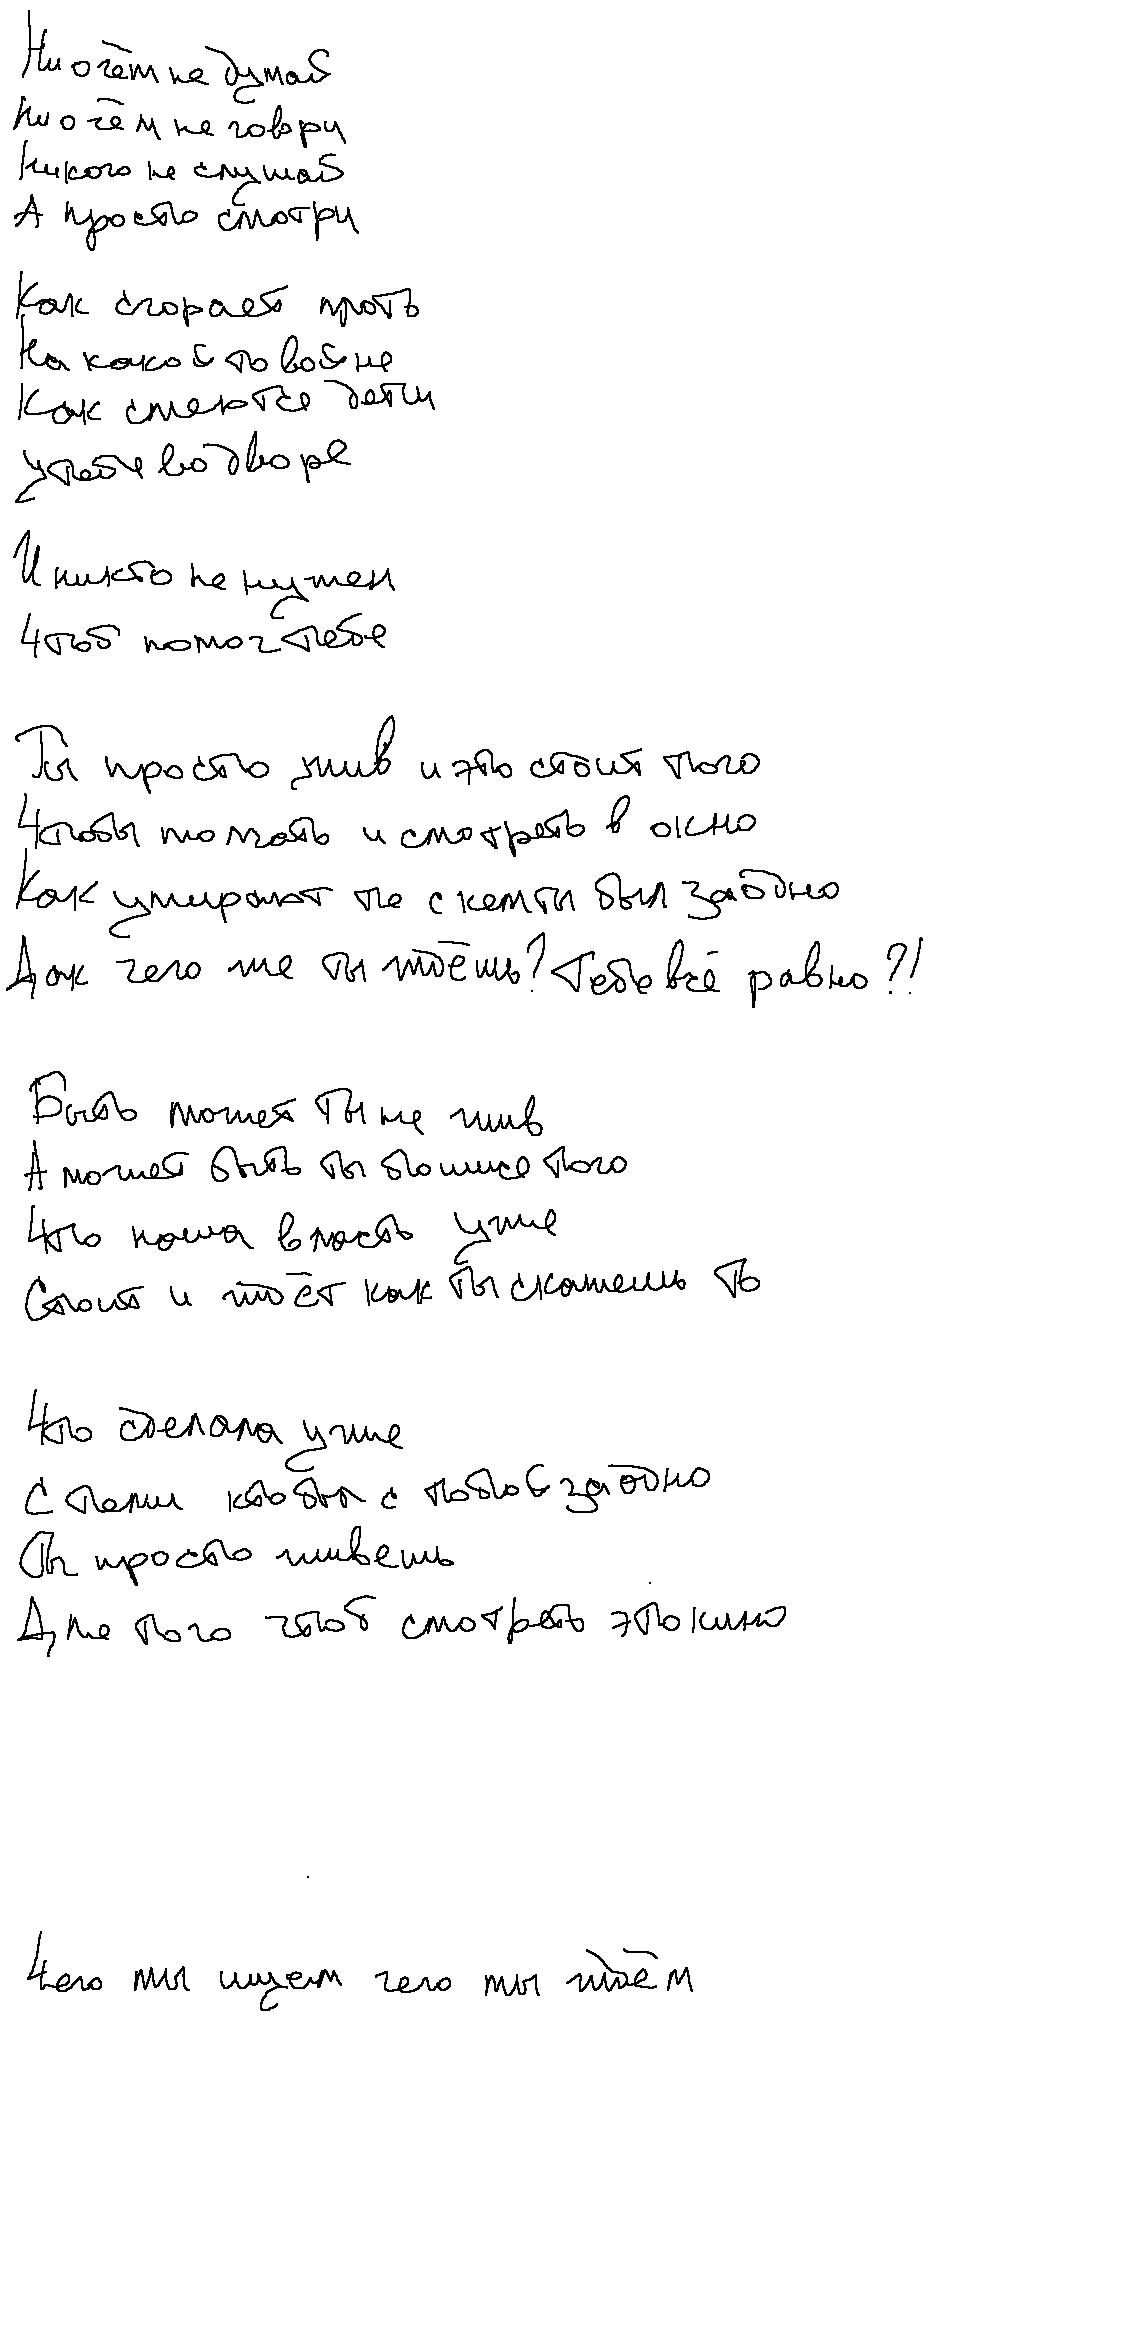 Ни о чём не думай
Ни о чём не говри
Никого не слушай
А просто смотри
Как сгорает
На какой то войне
Как смеются дети
у тебя во дворе
И никто не нужен
Чтоб помог тебе
Ты просто жив и это стоит того
Чтобы молчать и смотреть в окно
Как умирают те с кем ты был заодно
Дак чего же ты ждёшь? Тебе всё равно?!
Быть может ты не жив
А может быть ты боишся того
Что наша власть уже
Стоит и ждёт как ты скажешь то
Что сделала уже
С теми кто был с тобой заодно
Ты просто живешь
Для того чтоб смотреть это кино
Чего мы ищем чего мы ждём